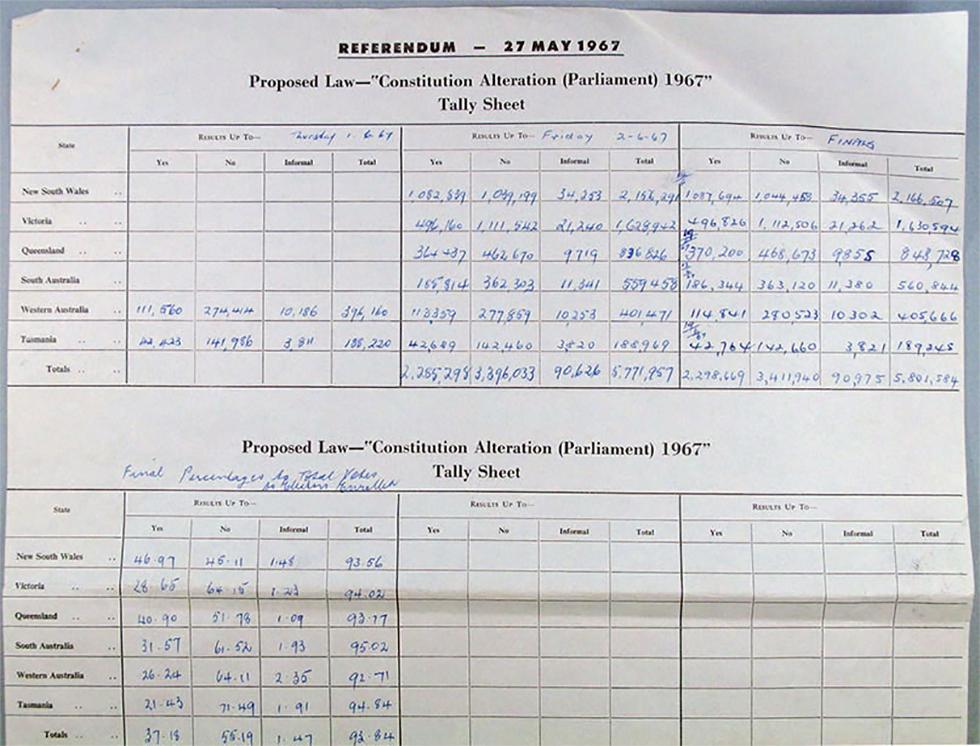 REFERENDUM — 27 MAY 1967
Proposed Law—"Constitution Alteration (Parliament) 1967"
Tally Sheet
State
RESULTS UP TO— Thursday 1-6-67
RESULTS UP TO— Friday 2-6-67
RESULTS UP TO— FINALS
Yes No Informal Total Yes No Informal Total Yes No Informal Total
New South Wales .. 1,082,839 1,039,199 34,253 2,156,291 1,087,694 1,044,458 34,355 2,166,507
Victoria .. .. 496,160 1,111,542 21,240 1,628,942 496,826 1,112,506 21,262 1,630,594
Queensland .. .. 462,670 9719 836826 370,200 468,673 9855 848,728
South Australia .. 185,814 362,303 11,341 559458 186,344 363,120 11,380 560,844
Western Australia .. 111,560 274,414 10,186 396,160 113359 277,859 10253 401,471 114,841 280,523 10302 405,666
Tasmania .. .. 42,423 141,986 3,811 188,220 42,689 142,460 3,820 188,969 42,764 142,660 3,821 189,245
Totals .. .. 2,265,298 3,396,033 90,626 5,771,957 2,298,669 3,411,940 90,975 5,801,584
Proposed Law—"Constitution Alteration (Parliament) 1967"
Tally Sheet
Final Percentages by Total Votes
Enrolled
State
RESULTS UP TO— RESULTS UP TO— RESULTS UP TO—
Yes No Informal Total Yes No Informal Total Yes No Informal Total
New South Wales .. 46.97 45.11 1.48 93.56
Victoria .. .. 28.65 64.15 1.23 94.02
Queensland .. .. 40.90 51.78 1.09 93.77
South Australia .. 31.57 61.52 1.93 95.02
Western Australia .. 26.24 64.11 2.35 92.71
Tasmania .. .. 21.43 71.49 1.91 94.84
Totals .. .. 37.18 55.19 1.47 93.84